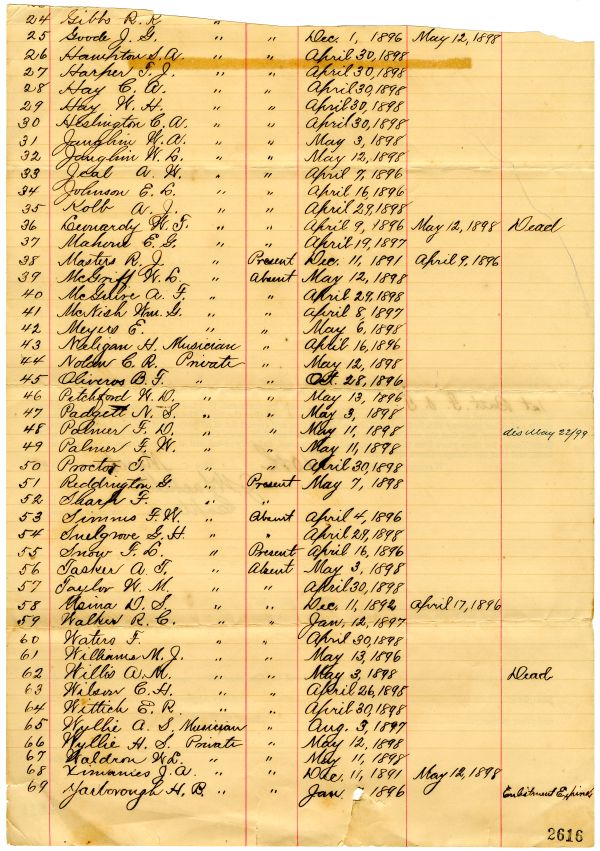 24 Gibbs R. K
25 Goode J. G. " " Dec. 1, 1896 May 12, 1898
26 Hampton S. A. " " April 30, 1898
27 Harper T. J. " " April 30, 1898
28 Hay C. A. " " April 30, 1898
29 Hay W. H. " " April 30, 1898
30 C. A. " " April 30, 1898
31 W. A. " " May 3, 1898
32 W. L. " " May 12, 1898
33 A. W. " " April 7, 1896
34 Johnson E. L. " " April 16, 1896
35 Kolb A. J. " " April 29, 1898
36 Leonardy W. F. " " April 9, 1896 May 12, 1898 Dead
37 Mahone E. G. " " April 19, 1897
38 Masters R. J. " Present Dec. 11, 1891 April 9, 1896
39 McGriff W. L. " Absent May 12, 1898
40 A. F. " " April 29, 1898
41 McNish Wm. G. " " April 8, 1897
42 Meyers E. " " May 6, 1898
43 Neligan H. Musician " April 16, 1896
44 Nolan C. R. Private " May 12, 1898
45 Oliveros B. F. " " Oct. 28, 1896
46 Pitchford W. D. " " May 13, 1896
47 Padgett N. S. " " May 3, 1898
48 Palmer F. D. " " May 11, 1898 dis May 22/99
49 Palmer F. W. " " May 11, 1898
50 Proctor T. " " April 30, 1898
51 Reddington G. " Present May 7, 1898
52 Sharp F. " "
53 Simms F. W. " Absent April 4, 1896
54 Snelgrove G. H. " " April 29, 1898
55 Snow F. L. " Present April 16, 1896
56 Tasker A. T. " Absent May 3, 1898
57 Taylor W. M. " " April 30, 1898
58 Usina D. S. " " Dec. 11, 1892 April 17, 1896
59 Walker R. C. " " Jan. 12, 1897
60 Waters F. " " April 30, 1898
61 Williams M. J. " " May 13, 1896
62 Willis A. M. " " May 3, 1898 Dead
63 Wilson C. H. " " April 26, 1895
64 Wittich E. R. " " April 30, 1898
65 Wyllie A. S. Musician " Aug. 3, 1897
66 Wyllie H. S. Private " May 12, 1898
67 Waldron W. L. " " May 11, 1898
68 Ximanies J. A. " " Dec. 11, 1891 May 12, 1898
69 Yarborough H. B. " " Jan. 1896 Enlistment Expired
2616